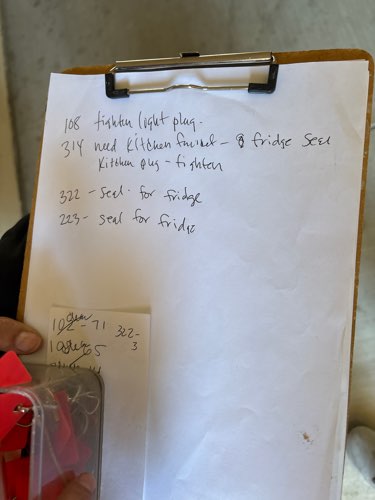 108 tighten light plug.
314 need kitchen faucet - & fridge seal
kitchen plug - tighten
322 - seal for fridge
223 - seal for fridge
102 - 71 322-
3